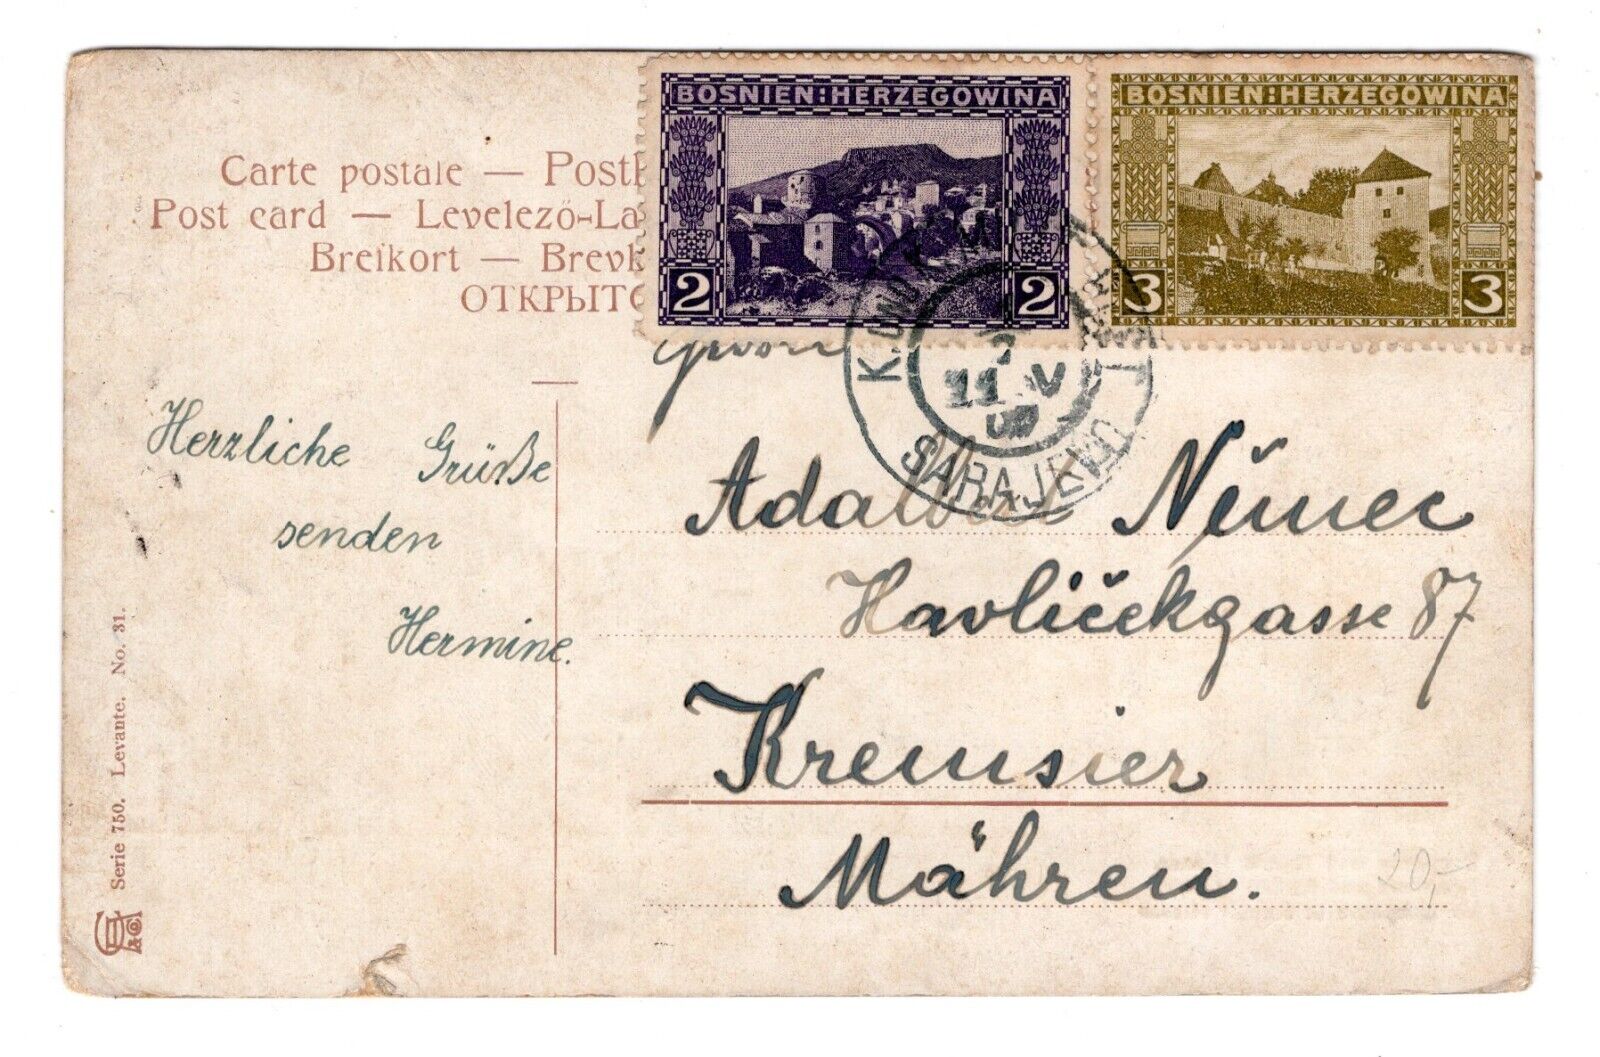 BOSNIEN:HERZEGOWINA
2 2
BOSNIEN:HERZEGOWINA
3 3
Carte postale — Postk
Post card — Levelező-La
Breikort — Brevk
ОТКРЫТО
SARAJEVO
11 V
Herzliche Grüße
senden
Hermine.
Adalbert Němec
Havlíčekgasse 87
Kremsier
Mähren.
20,-
Serie 750. Levante. No. 31.